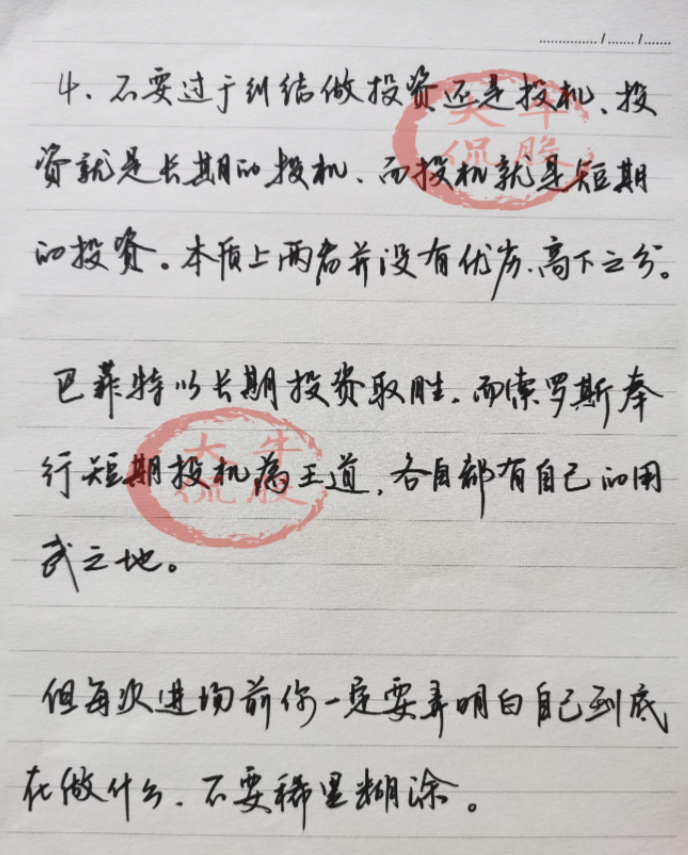 4、不要过于纠结做投资还是投机、投
资就是长期的投机、而投机就是短期
的投资。本质上两者并没有优劣、高下之分。
巴菲特以长期投资取胜、而索罗斯奉
行短期投机为王道，各自都有自己的用
武之地。
但每次进场前你一定要弄明白自己到底
在做什么、不要稀里糊涂。
大牛
侃股
大牛
侃股